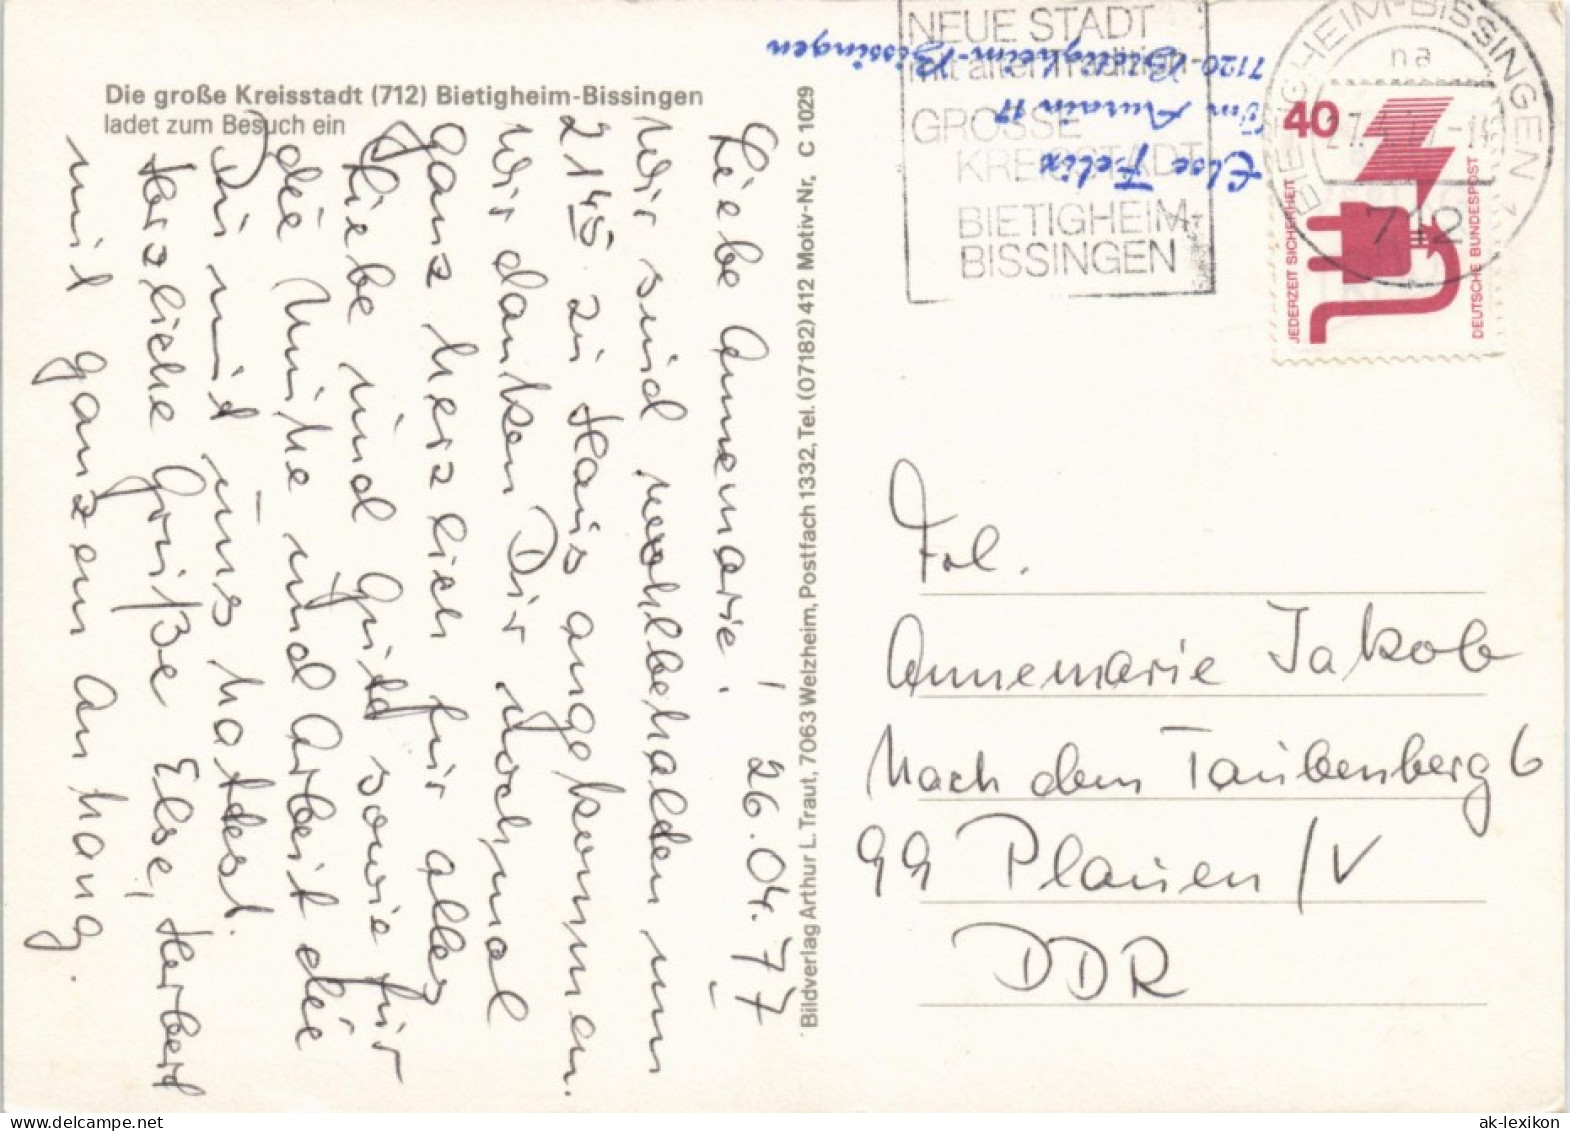 Die große Kreisstadt (712) Bietigheim-Bissingen
ladet zum Besuch ein
Liebe Annemarie! 26.04.77
Wir sind wohlbehalden um
21⁴⁵ zu Haus angekommen.
Wir danken Dir nochmal
ganz herzlich für alles
Liebe und Gute sowie für
die Mühe und Arbeit die
Du mit uns hattest.
Herzliche Grüße Else, Herberd
mit ganzem Anhang.
Bildverlag Arthur L. Traut, 7063 Welzheim, Postfach 1332, Tel. (07182) 412 Motiv-Nr. C 1029
Else Felix
Im Aurain 17
7120-Bietigheim-Bissingen
NEUE STADT
mit alter Tradition
GROSSE
KREISSTADT
BIETIGHEIM-
BISSINGEN
BIETIGHEIM-BISSINGEN 1
na
712
40
JEDERZEIT SICHERHEIT
DEUTSCHE BUNDESPOST
Frl.
Annemarie Jakob
Nach dem Taubenberg 6
99 Plauen/V
DDR
ak-lexikon